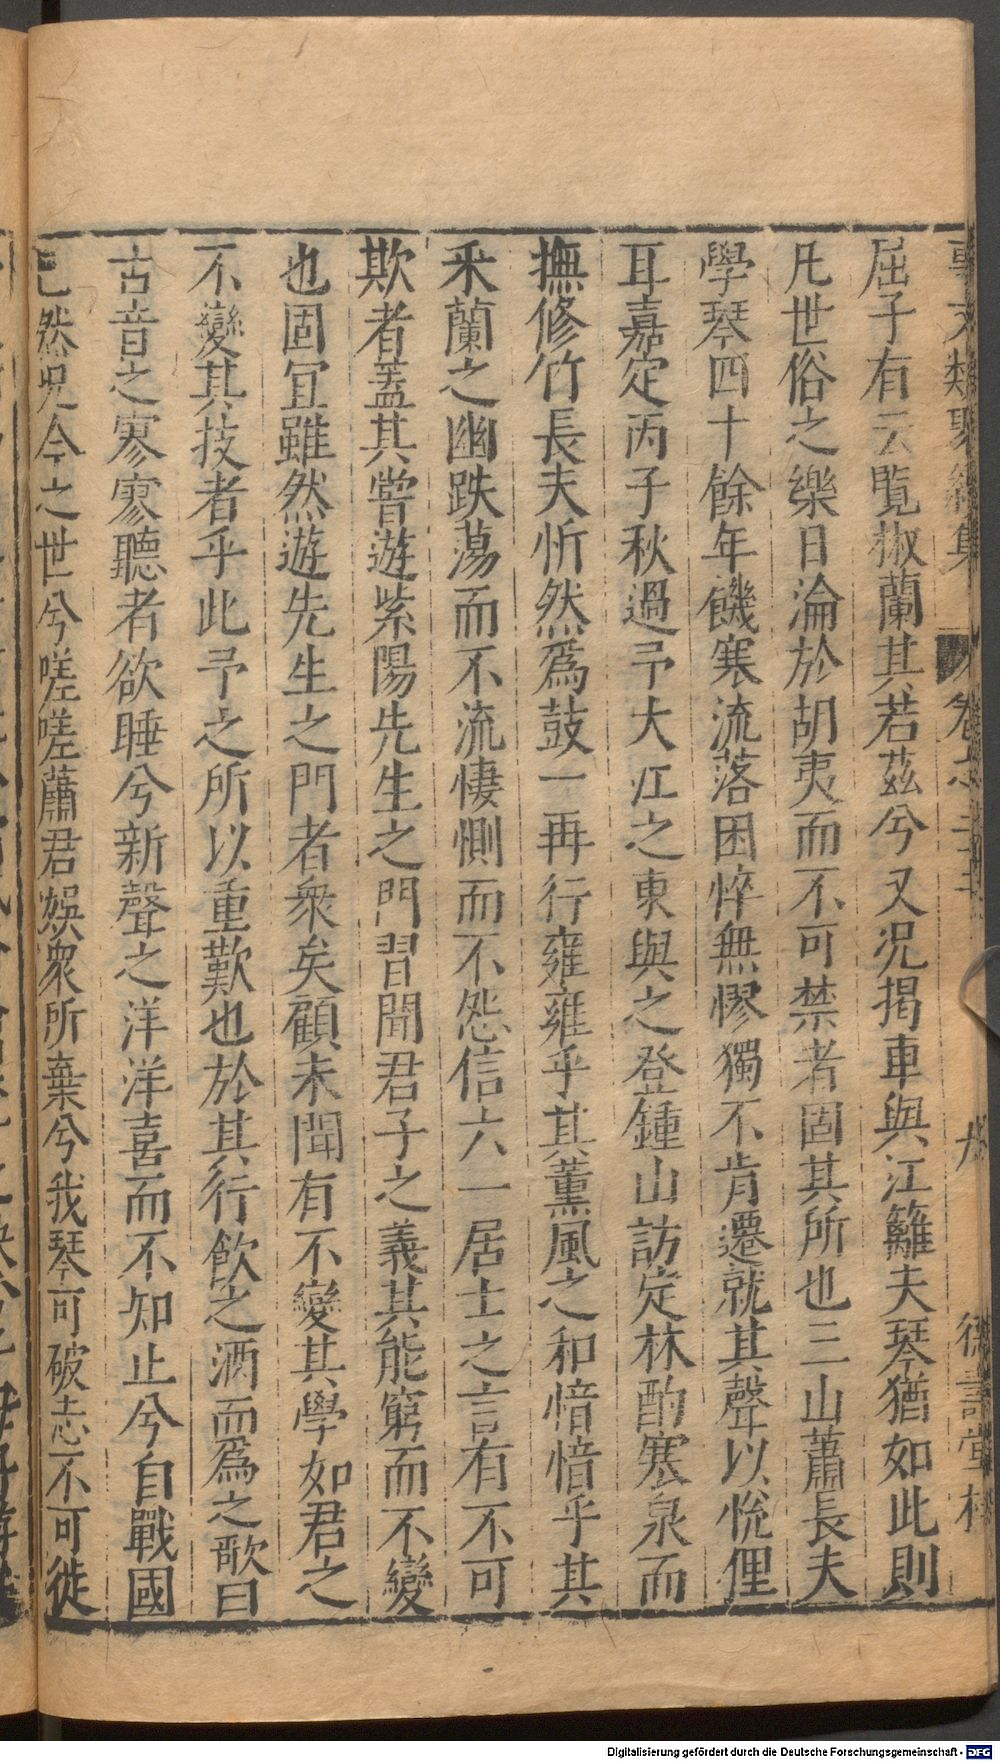 事文類聚續集 卷之二十二 廿 德壽堂梓
屈子有云覽椒蘭其若茲兮又況揭車與江籬夫琴猶如此則
凡世俗之樂日淪於胡夷而不可禁者固其所也三山蕭長夫
學琴四十餘年饑寒流落困悴無憀獨不肯遷就其聲以悅俚
耳嘉定丙子秋過予大江之東與之登鍾山訪定林酌寒泉而
撫修竹長夫忻然爲鼓一再行雍雍乎其薰風之和愔愔乎其
采蘭之幽跌蕩而不流悽惻而不怨信六一居士之言有不可
欺者蓋其嘗遊紫陽先生之門習聞君子之義其能窮而不變
也固宜雖然遊先生之門者衆矣顧未聞有不變其學如君之
不變其技者乎此予之所以重歎也於其行飲之酒而爲之歌曰
古音之寥寥聽者欲睡兮新聲之洋洋喜而不知止兮自戰國
已然況今之世兮嗟嗟蕭君娛衆所棄兮我琴可破志不可徙
Digitalisierung gefördert durch die Deutsche Forschungsgemeinschaft - DFG